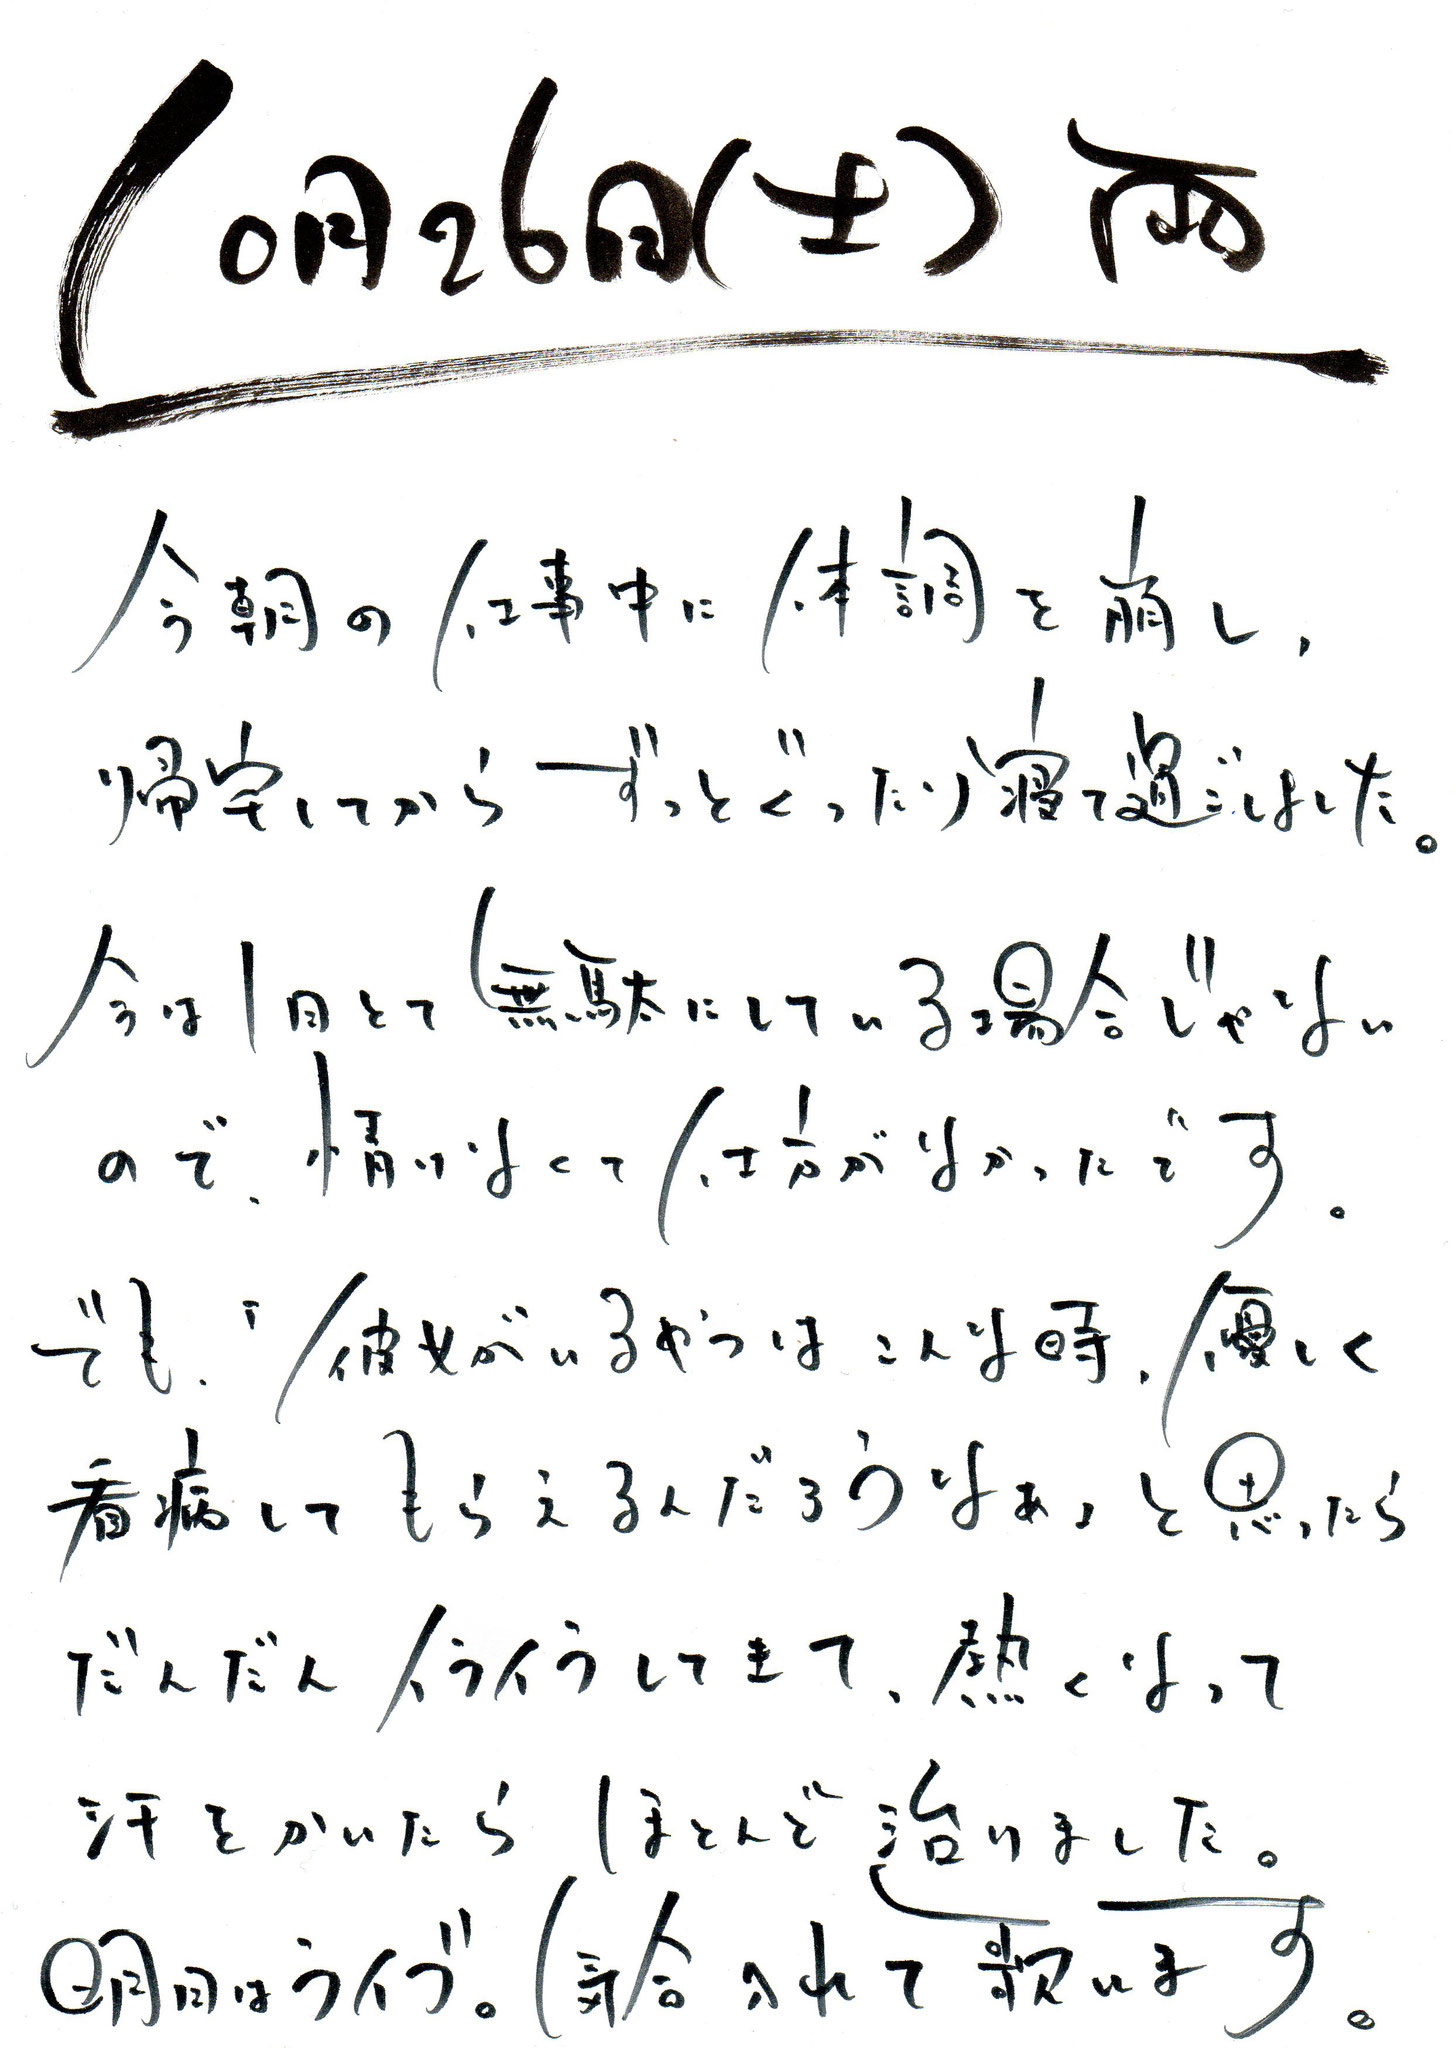 10月26日(土) 雨
今朝の仕事中に体調を崩し、
帰宅してからずっとぐったり寝て過ごしました。
今は1日とて無駄にしている場合じゃない
ので、情けなくて仕方がなかったです。
でも、「彼女がいるやつはこんな時、優しく
看病してもらえるんだろうなぁ」と思ったら
だんだんイライラしてきて、熱くなって
汗をかいたらほとんど治りました。
明日はライブ。気合入れて歌います。